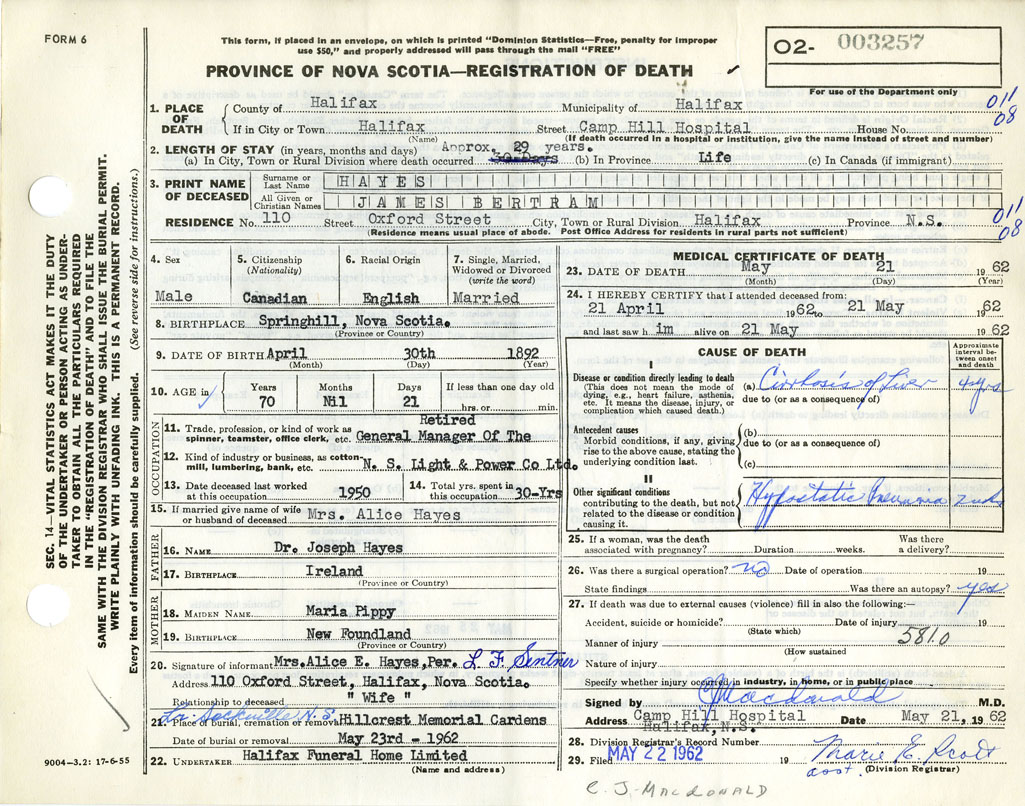 FORM 6
This form, if placed in an envelope, on which is printed "Dominion Statistics—Free, penalty for improper
use $50," and properly addressed will pass through the mail "FREE"
PROVINCE OF NOVA SCOTIA—REGISTRATION OF DEATH
02- 003257
For use of the Department only
011
08
1. PLACE OF DEATH
County of Halifax Municipality of Halifax
If in City or Town Halifax Street Camp Hill Hospital House No.
(Name) (If death occurred in a hospital or institution, give the name instead of street and number)
2. LENGTH OF STAY (in years, months and days) Approx. 29 years.
(a) In City, Town or Rural Division where death occurred (b) In Province Life (c) In Canada (if immigrant)
3. PRINT NAME OF DECEASED
Surname or Last Name HAYES
All Given or Christian Names JAMES BERTRAM
RESIDENCE No. 110 Street Oxford Street City, Town or Rural Division Halifax Province N.S.
(Residence means usual place of abode. Post Office Address for residents in rural parts not sufficient)
011
08
4. Sex
Male
5. Citizenship
(Nationality)
Canadian
6. Racial Origin
English
7. Single, Married,
Widowed or Divorced
(write the word)
Married
8. BIRTHPLACE Springhill, Nova Scotia.
(Province or Country)
9. DATE OF BIRTH April 30th 1892
(Month) (Day) (Year)
10. AGE in
Years Months Days If less than one day old
70 Nil 21 hrs. or min.
OCCUPATION
Retired
11. Trade, profession, or kind of work as
spinner, teamster, office clerk, etc. General Manager Of The
12. Kind of industry or business, as cotton-
mill, lumbering, bank, etc. N. S. Light & Power Co Ltd.
13. Date deceased last worked
at this occupation 1950
14. Total yrs. spent in
this occupation 30-Yrs
15. If married give name of wife
or husband of deceased Mrs. Alice Hayes
FATHER
16. NAME Dr. Joseph Hayes
17. BIRTHPLACE Ireland
(Province or Country)
MOTHER
18. MAIDEN NAME Maria Pippy
19. BIRTHPLACE New Foundland
(Province or Country)
20. Signature of informant Mrs. Alice E. Hayes, Per. L. F. Sentner
Address 110 Oxford Street, Halifax, Nova Scotia.
Relationship to deceased " Wife "
Sackville N.S.
21. Place of burial, cremation or removal Hillcrest Memorial Gardens
Date of burial or removal May 23rd - 1962
22. UNDERTAKER Halifax Funeral Home Limited
(Name and address)
MEDICAL CERTIFICATE OF DEATH
23. DATE OF DEATH May 21 1962
(Month) (Day) (Year)
24. I HEREBY CERTIFY that I attended deceased from:
21 April 1962 to 21 May 1962
and last saw him alive on 21 May 1962
CAUSE OF DEATH
Approximate
interval be-
tween onset
and death
I
Disease or condition directly leading to death
(This does not mean the mode of
dying, e.g., heart failure, asthenia,
etc. It means the disease, injury, or
complication which caused death.)
(a) Cirrhosis of Liver 4 yrs
due to (or as a consequence of)
Antecedent causes
Morbid conditions, if any, giving
rise to the above cause, stating the
underlying condition last.
(b)
due to (or as a consequence of)
(c)
II
Other significant conditions
contributing to the death, but not
related to the disease or condition
causing it.
Hypostatic Pneumonia 2 wks
25. If a woman, was the death
associated with pregnancy? Duration weeks. Was there
a delivery?
26. Was there a surgical operation? no Date of operation 19
State findings Was there an autopsy? yes
27. If death was due to external causes (violence) fill in also the following:—
Accident, suicide or homicide? Date of injury 19
(State which)
Manner of injury 581.0
(How sustained
Nature of injury
Specify whether injury occurred in industry, in home, or in public place
Signed by CJ Macdonald M.D.
Address Camp Hill Hospital Date May 21, 1962
Halifax, N.S.
28. Division Registrar's Record Number
29. Filed MAY 22 1962 19 Marie E. Scott
asst. (Division Registrar)
C. J. MACDONALD
SEC. 14—VITAL STATISTICS ACT MAKES IT THE DUTY
OF THE UNDERTAKER OR PERSON ACTING AS UNDER-
TAKER TO OBTAIN ALL THE PARTICULARS REQUIRED
IN THE "REGISTRATION OF DEATH" AND TO FILE THE
SAME WITH THE DIVISION REGISTRAR WHO SHALL ISSUE THE BURIAL PERMIT.
WRITE PLAINLY WITH UNFADING INK. THIS IS A PERMANENT RECORD.
Every item of information should be carefully supplied. (See reverse side for instructions.)
9004—3.2: 17-6-55